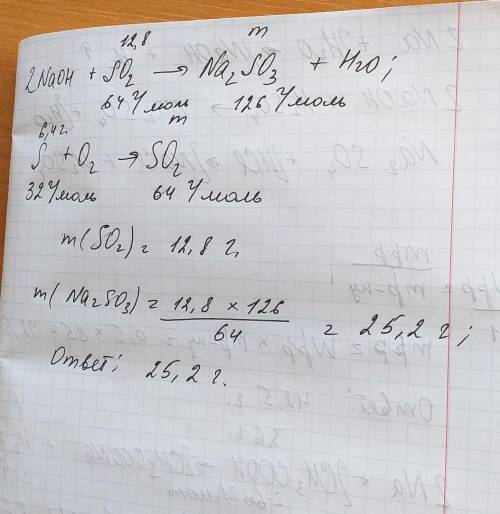 12,8 m
2NaOH + SO₂ → Na₂SO₃ + H₂O;
64 г/моль 126 г/моль
6,4 г. m
S + O₂ → SO₂
32 г/моль 64 г/моль
m(SO₂) = 12,8 г.
m(Na₂SO₃) = 12,8 × 126 / 64 = 25,2 г;
Ответ; 25,2 г.